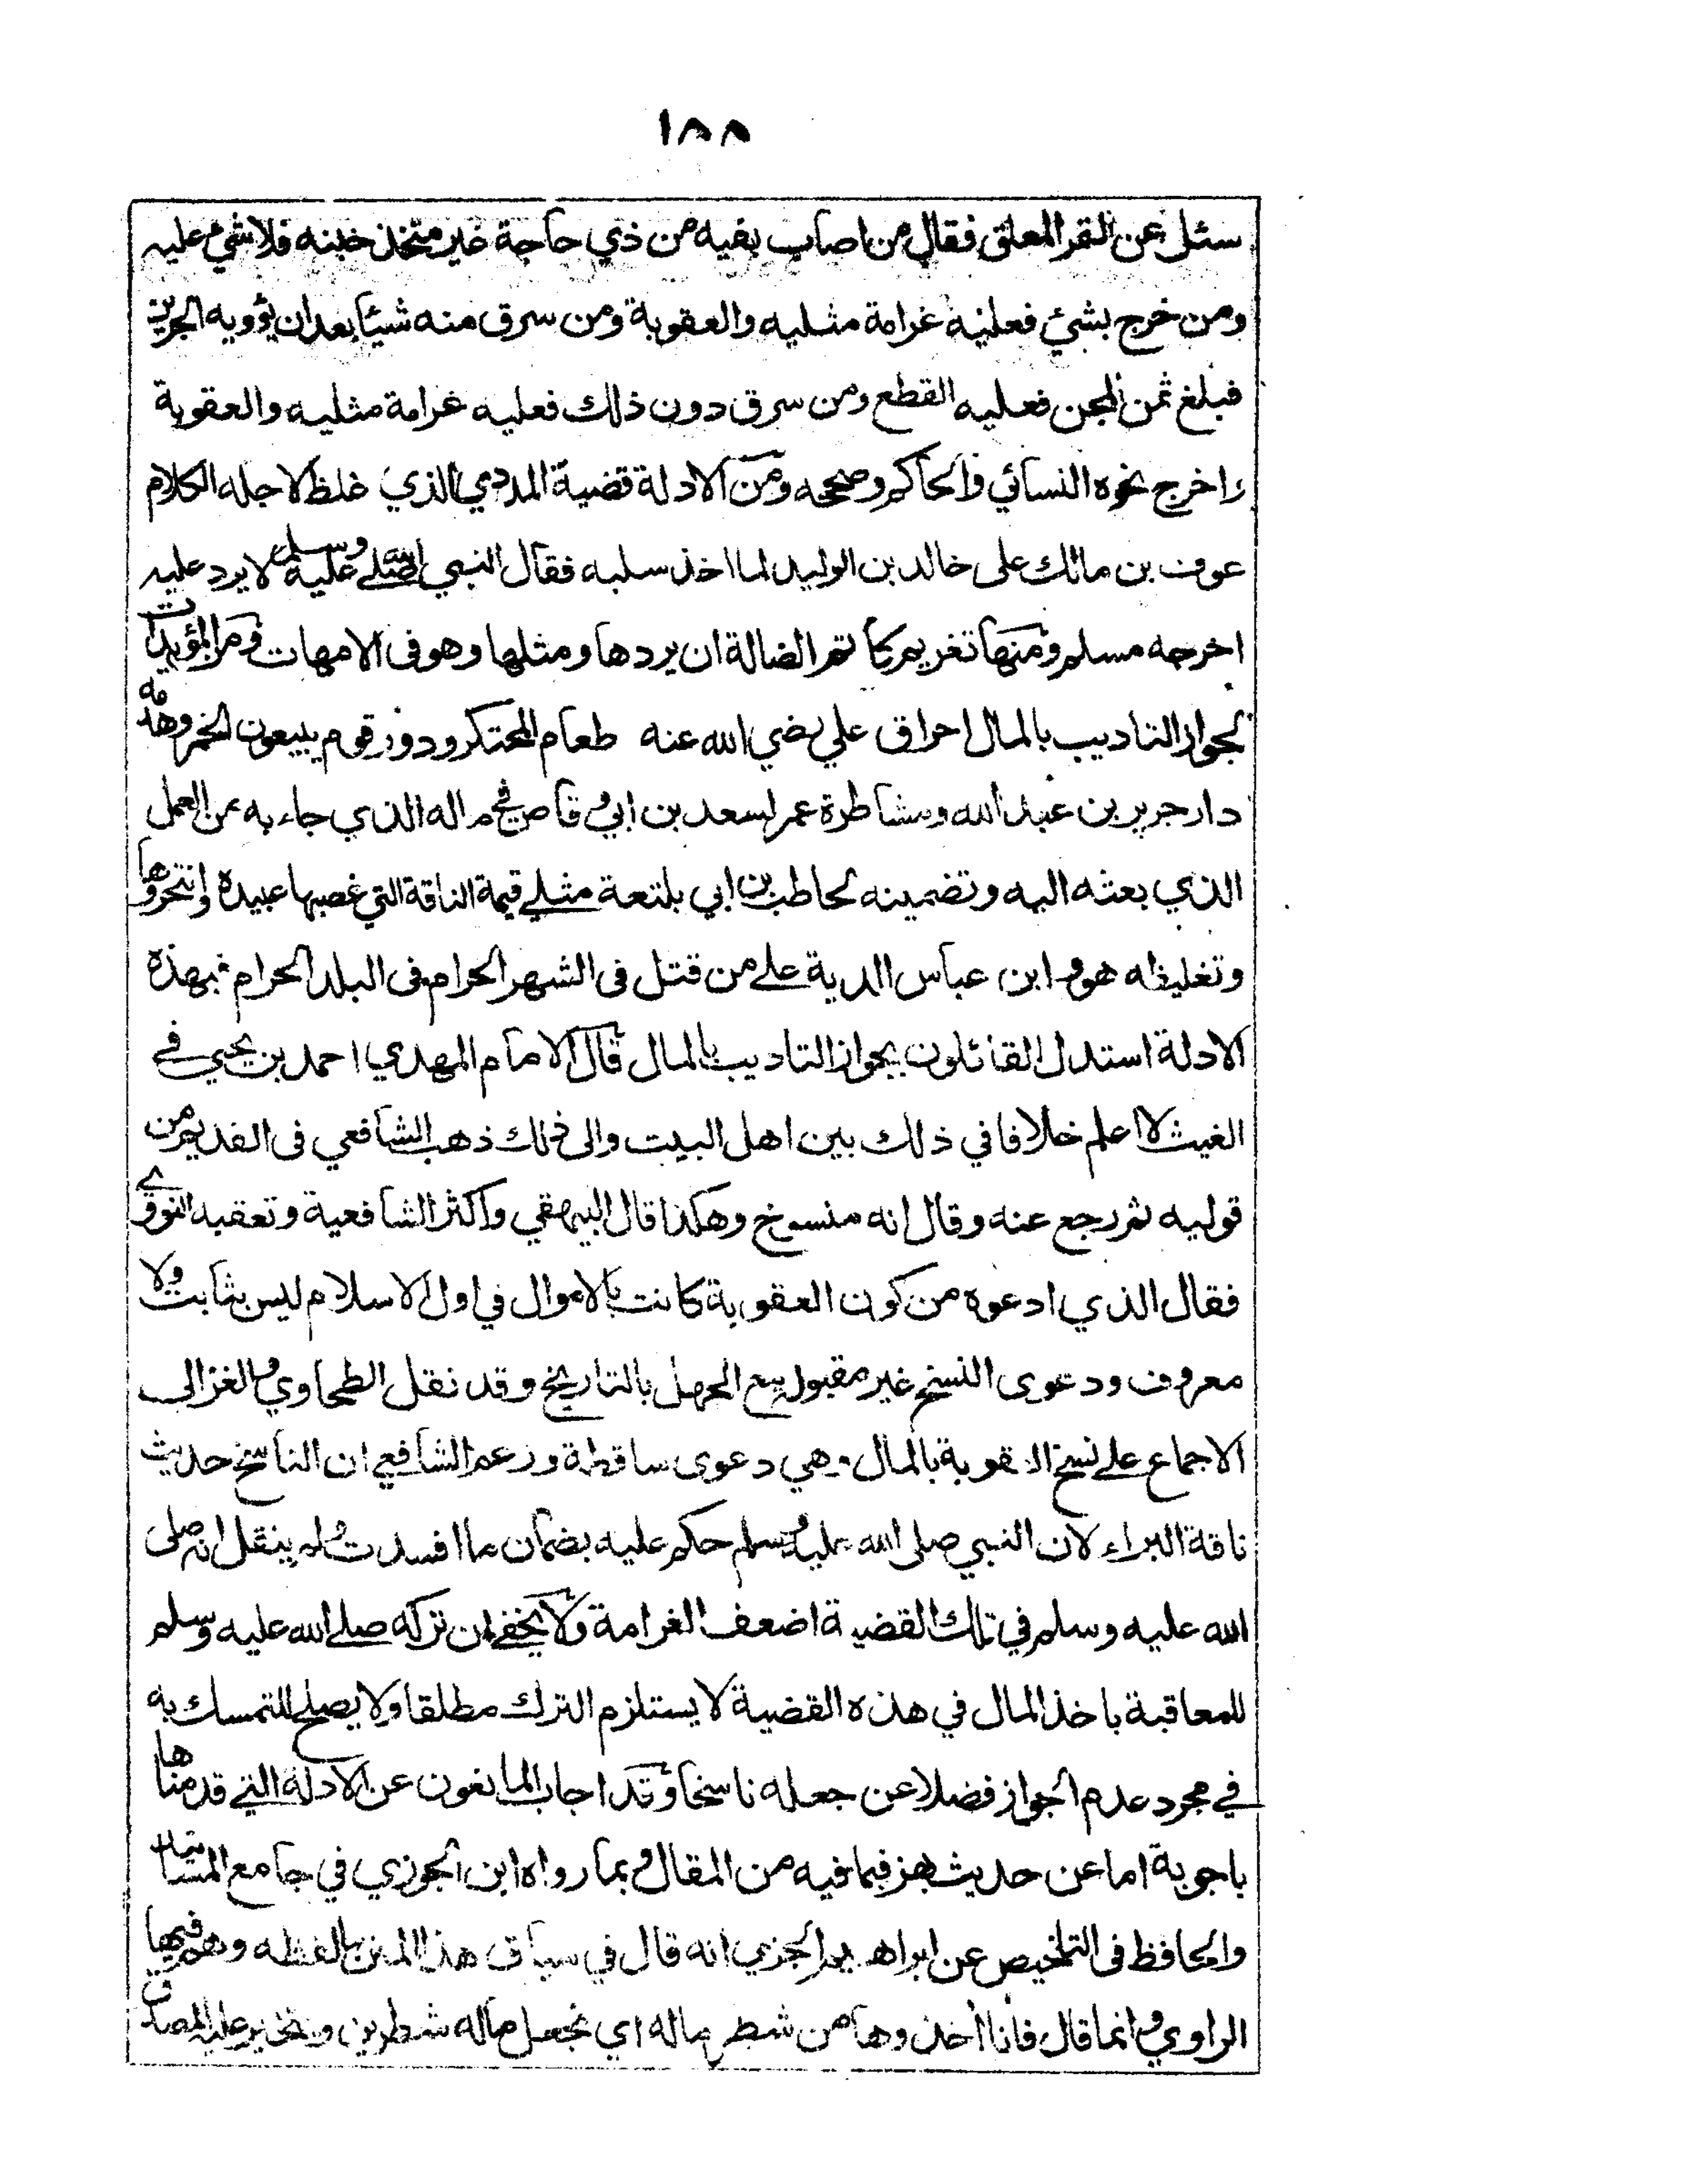 ١٨٨
سئل عن التمر المعلق فقال من اصاب بفيه من ذي حاجة غير متخذ خبنه فلا شيء عليه
ومن خرج بشئ فعليه غرامة مثليه والعقوبة ومن سرق منه شيئا بعد ان يؤويه الجرين
فبلغ ثمن المجن فعليه القطع ومن سرق دون ذلك فعليه غرامة مثليه والعقوبة
واخرج نحوه النسائي والحاكم وصححه ومن الادلة قضية المددي الذي غلظ لاجله الكلام
عوف بن مالك على خالد بن الوليد لما اخذ سلبه فقال النبي صلى الله عليه وسلم لا يرد عليه
اخرجه مسلم ومنها تغريم كاتم الضالة ان يردها ومثلها وهو في الامهات ومن المؤيدات
لجواز التاديب بالمال احراق علي رضي الله عنه طعام المحتكر ودور قوم يبيعون الخمر وهدمه
دار جرير بن عبد الله ومشاطرة عمر لسعد بن ابي وقاص في ماله الذي جاء به من العمل
الذي بعثه اليه وتضمينه لحاطب بن ابي بلتعة مثلي قيمة الناقة التي غصبها عبيده وانتحروها
وتغليظه هو وابن عباس الدية على من قتل في الشهر الحرام في البلد الحرام فبهذه
الادلة استدل القائلون بجواز التاديب بالمال قال الامام المهدي احمد بن يحيى في
الغيث لا اعلم خلافا في ذلك بين اهل البيت والى ذلك ذهب الشافعي في القديم من
قوليه ثم رجع عنه وقال انه منسوخ وهكذا قال البيهقي واكثر الشافعية وتعقبه النووي
فقال الذي ادعوه من كون العقوبة كانت بالاموال في اول الاسلام ليس بثابت ولا
معروف ودعوى النسخ غير مقبوله مع الجهل بالتاريخ وقد نقل الطحاوي والغزالي
الاجماع على نسخ العقوبة بالمال وهي دعوى ساقطة وزعم الشافعي ان الناسخ حديث
ناقة البراء لان النبي صلى الله عليه وسلم حكم عليه بضمان ما افسدت ولم ينقل انه صلى
الله عليه وسلم في تلك القضية اضعف الغرامة ولا يخفى ان تركه صلى الله عليه وسلم
للمعاقبة باخذ المال في هذه القضية لا يستلزم الترك مطلقا ولا يصلح للتمسك به
في مجرد عدم الجواز فضلا عن جعله ناسخا وقد اجاب المانعون عن الادلة التي قدمناها
باجوبة اما عن حديث بهز فبما فيه من المقال وبما رواه ابن الجوزي في جامع المسانيد
والحافظ في التلخيص عن ابراهيم الحربي انه قال في سياق هذا المتن بالفظه وهم فيها
الراوي وانما قال فانا اخذوها من شطر ماله اي نجعل ماله شطرين ويتخير عليه المصدق